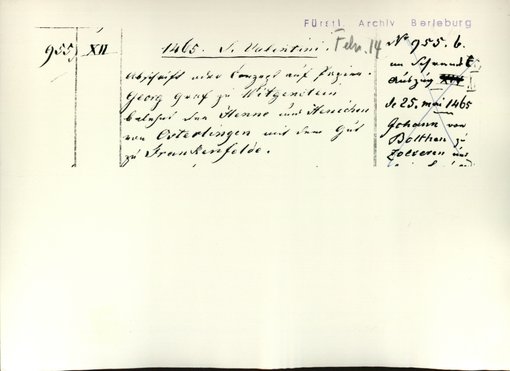 Fürstl. Archiv Berleburg
955 XII
1465. S. Valentini. Febr. 14
Abschrift oder Conzept auf Papier.
Georg Graf zu Witgenstein
belehnt den Henne und Henichen
von Osterlingen mit dem Gut
zu Frankenfelde.
No 955. b.
im Schrank
Auszug XIV
de 25. mai 1465
Johann von
zu
und